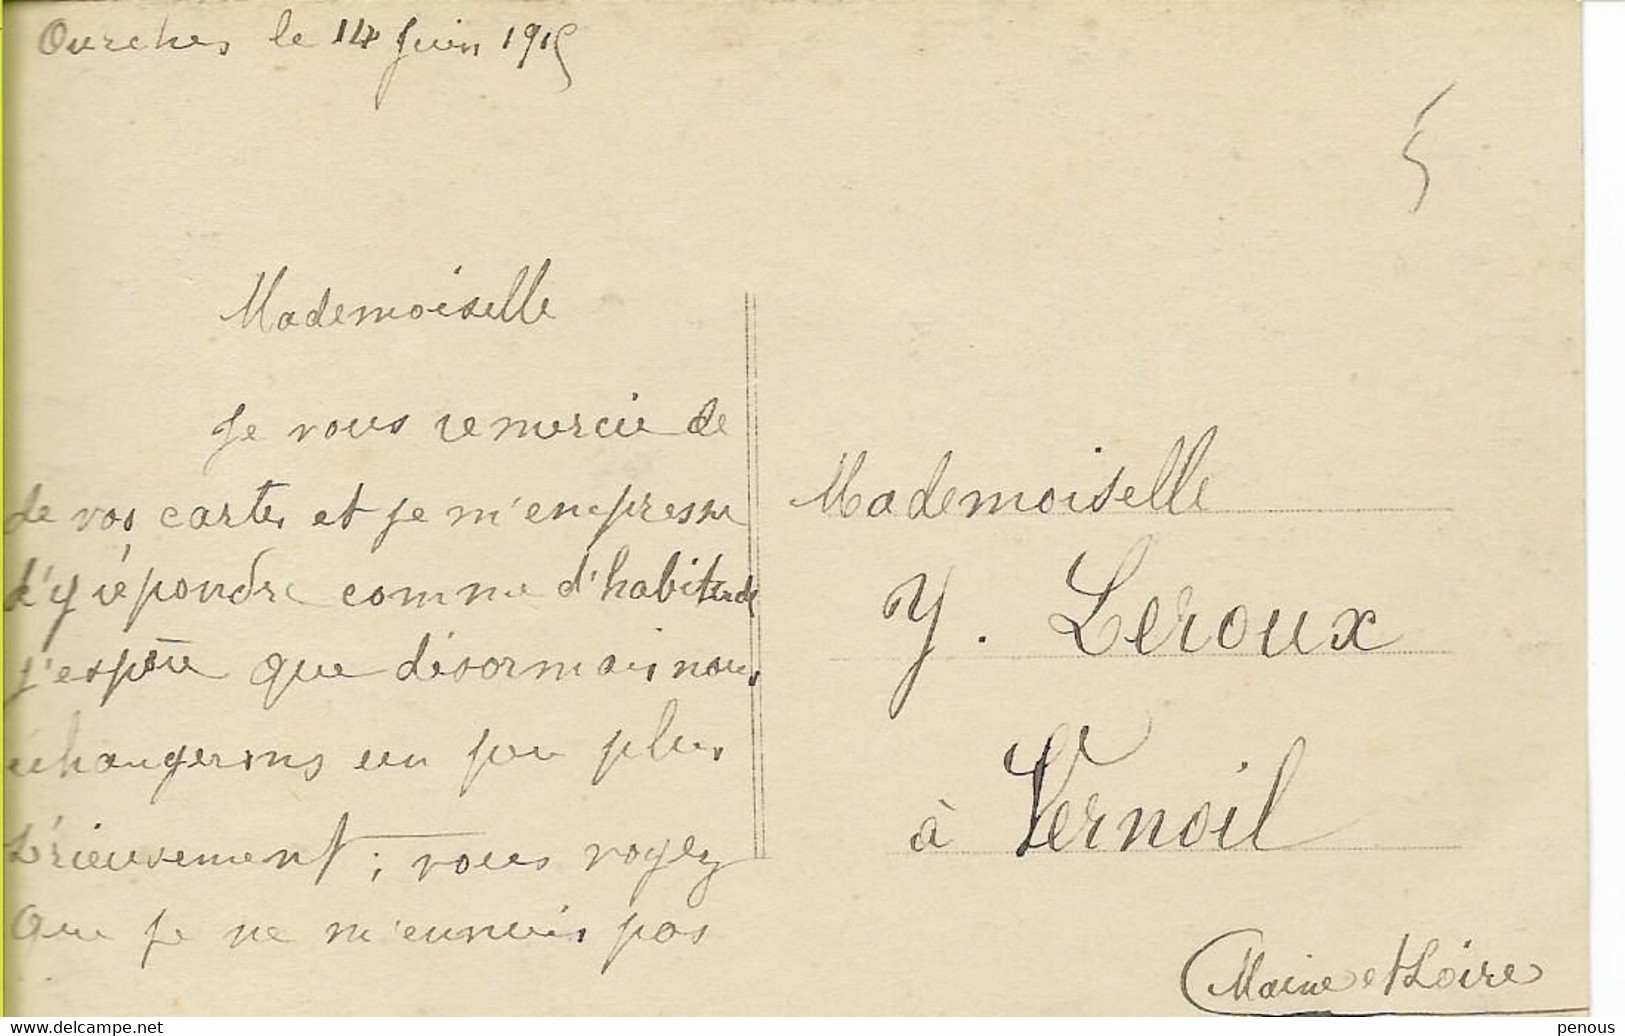 Ourches le 14 Juin 1915
Mademoiselle
Je vous remercie de
de vos cartes et je m'empresse
d'y répondre comme d'habitude
j'espère que désormais nous
échangerons un peu plus
sérieusement ; vous voyez
que je ne m'ennuis pas
Mademoiselle
Y. Leroux
à Vernoil
(Maine et Loire
penous